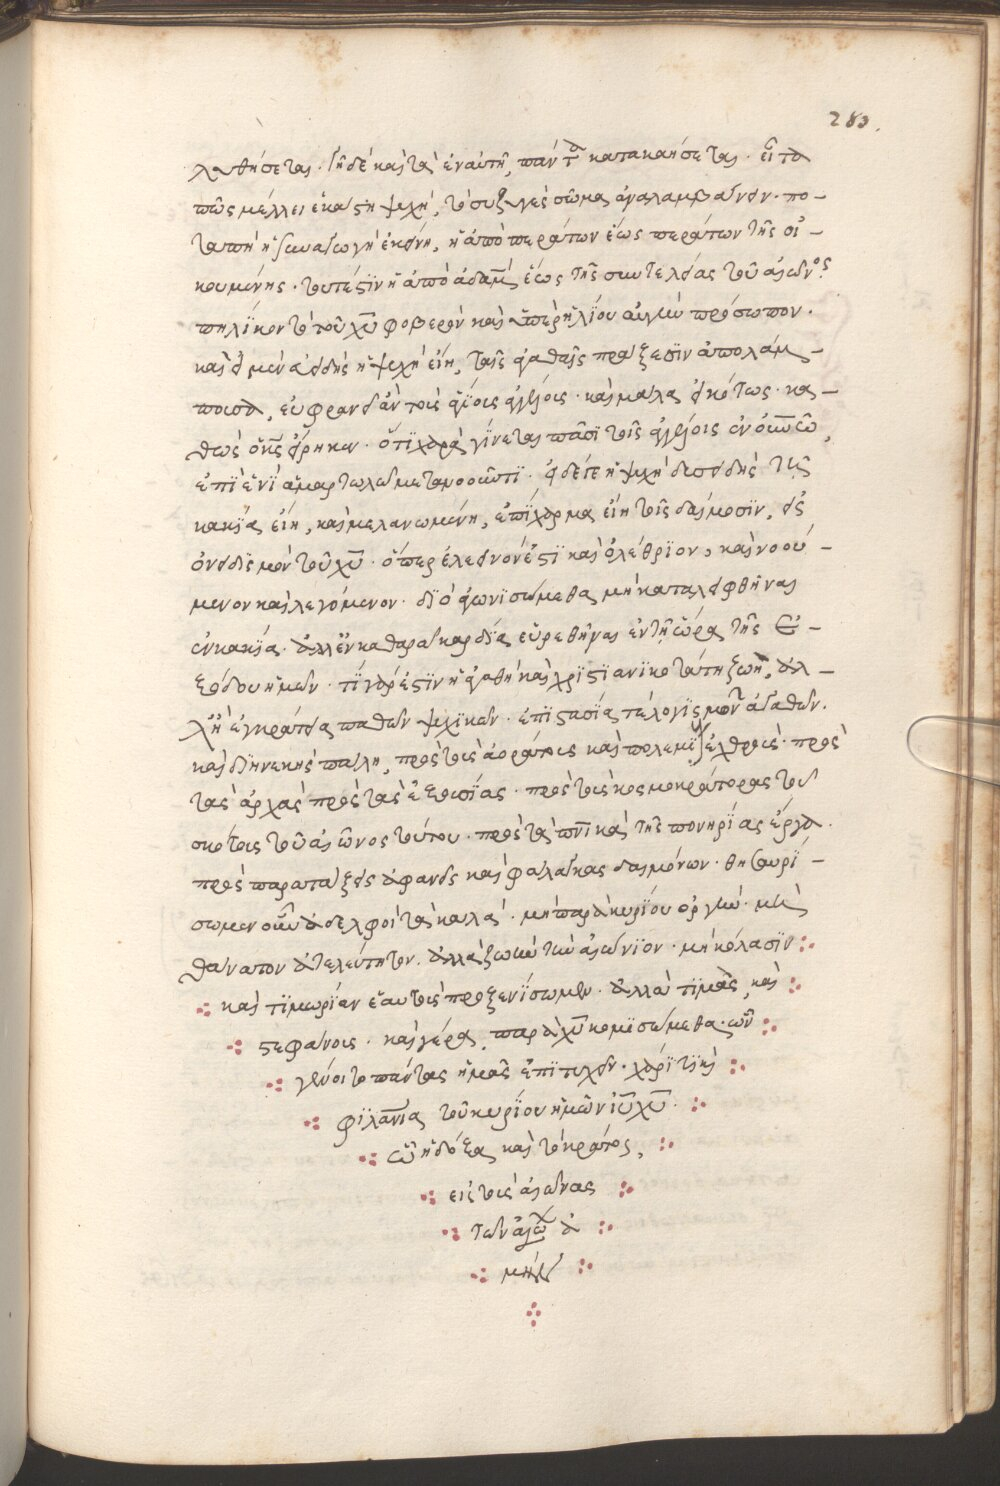 283.
λυθήσεται. γῆ δὲ καὶ τὰ ἐν αὐτῇ, πάντα κατακαήσεται. εἶτα
πῶς μέλλει ἑκάστη ψυχὴ, τὸ συζυγὲς σῶμα ἀναλαμβάνειν. πο-
ταπὴ ἡ συναγωγὴ ἐκείνη, ἡ ἀπὸ περάτων ἕως περάτων τῆς οἰ-
κουμένης. τουτέστιν ἡ ἀπὸ ἀδὰμ ἕως τῆς συντελείας τοῦ αἰῶνος.
πηλίκον τὸ τοῦ χυ φοβερὸν καὶ ὑπὲρ ἡλίου αὐγὴν πρόσωπον.
καὶ εἰ μὲν ἀειδὴς ἡ ψυχὴ εἴη, ταῖς ἀγαθαῖς πράξεσιν ἀπολάμ-
πουσα, εὐφρανεῖ ἂν τοὺς ἁγίοις ἀγγέλοις. καὶ μάλα εἰκότως. κα-
θὼς ὁ κς εἴρηκεν. ὅτι χαρὰ γίνεται πᾶσι τοῖς ἀγγέλοις ἐν οὐνῶ,
ἐπὶ ἑνὶ ἁμαρτωλῶ μετανοοῦντι. εἰ δέ γε ἡ ψυχὴ δυσειδὴς τῆ
κακία εἴη, καὶ μελανωμένη, ἐπίχαρμα εἴη τοῖς δαίμοσιν, εἰς
ὀνειδισμὸν τοῦ χυ. ὅπερ ἐλεεινόν ἐστι καὶ ὀλέθριον, καὶ νοού-
μενον καὶ λεγόμενον. διὸ ἀγωνισώμεθα μὴ καταλειφθῆναι
ἐν κακία. ἀλλ' ἐν καθαρᾶ καρδία εὑρεθῆναι ἐν τῆ ὥρα τῆς ἐ-
ξόδου ἡμῶν. τί γάρ ἐστιν ἡ ἀγαθὴ καὶ χριστιανικοτάτη ζωὴ, ἀλ-
λ' ἢ ἐγκράτεια παθῶν ψυχικῶν. ἐπιστασία τὲ λογισμῶν ἀγαθῶν.
καὶ διηνεκὴς πάλη, πρὸς τοὺς ἀοράτους καὶ πολεμίους ἐχθρούς. πρὸς
τὰς ἀρχὰς πρὸς τὰς ἐξουσίας. πρὸς τοὺς κοσμοκράτορας τοῦ
σκότους τοῦ αἰῶνος τούτου. πρὸς τὰ πνικὰ τῆς πονηρίας ἔργα.
πρὸς παρατάξεις ἀφανεῖς καὶ φάλαγγας δαιμόνων. θησαυρί-
σωμεν οὖν ἀδελφοὶ τὰ καλά. μὴ παρὰ κυρίου ὀργὴν. μὴ
θάνατον ἀτελεύτητον. ἀλλὰ ζωὴν τὴν αἰώνιον. μὴ κόλασιν
καὶ τιμωρίαν ἑαυτοῖς προξενίσωμεν. ἀλλὰ τιμὰς, καὶ
στεφάνους. καὶ γέρα, παρὰ χυ κομισώμεθα. ὧν
γένοιτο πάντας ἡμᾶς ἐπιτυχεῖν. χάριτι καὶ
φιλανία τοῦ κυρίου ἡμῶν ιυ χυ.
ᾧ ἡ δόξα καὶ τὸ κράτος,
εἰς τοὺς αἰῶνας
τῶν αἰώ ἀ
μήν